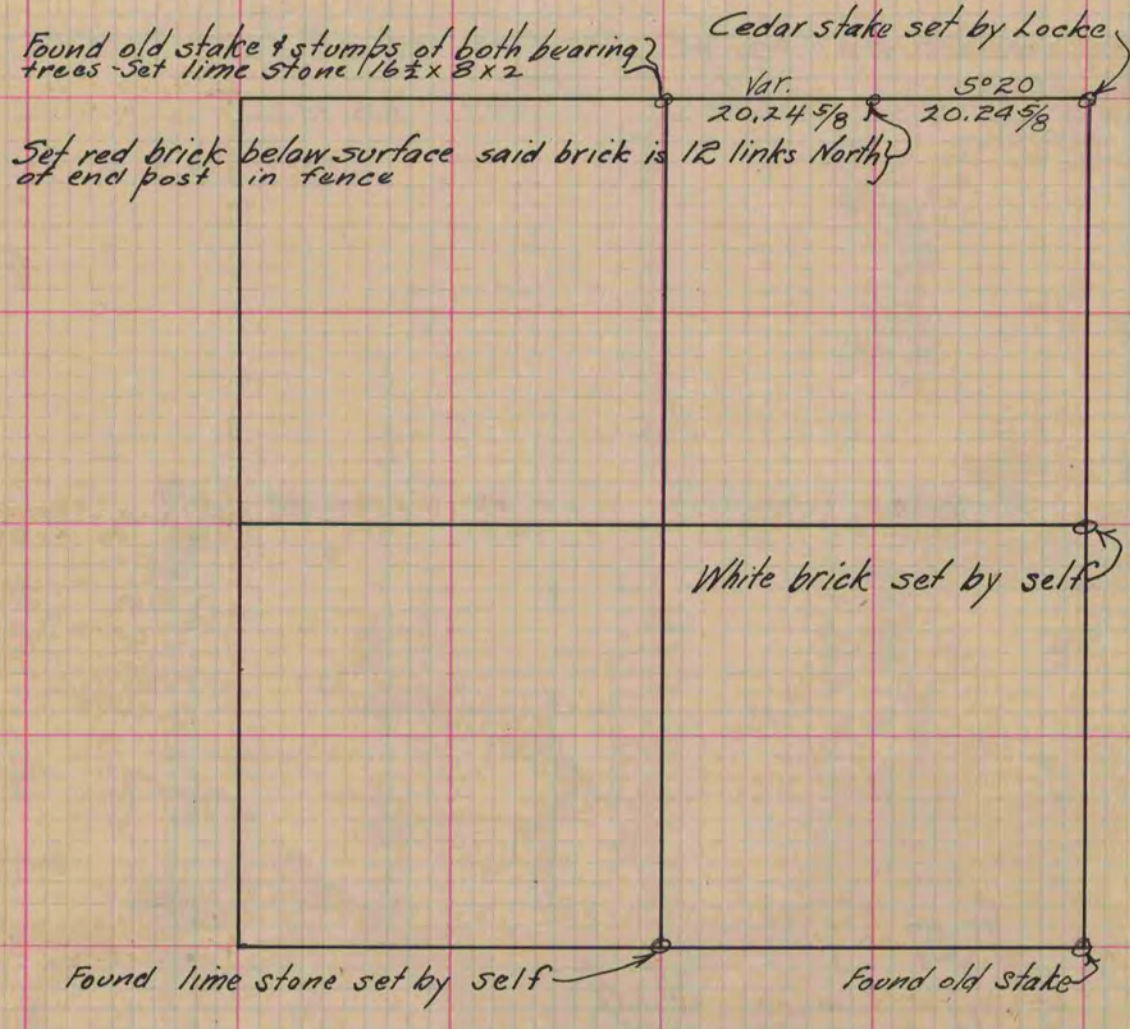 Cedar stake set by Locke
Found old stake & stumps of both bearing
trees - Set lime stone 16½ x 8 x 2
Var. 5°20
20.24 5/8 20.24 5/8
Set red brick below surface said brick is 12 links North
of end post in fence
White brick set by self
Found lime stone set by self
Found old stake